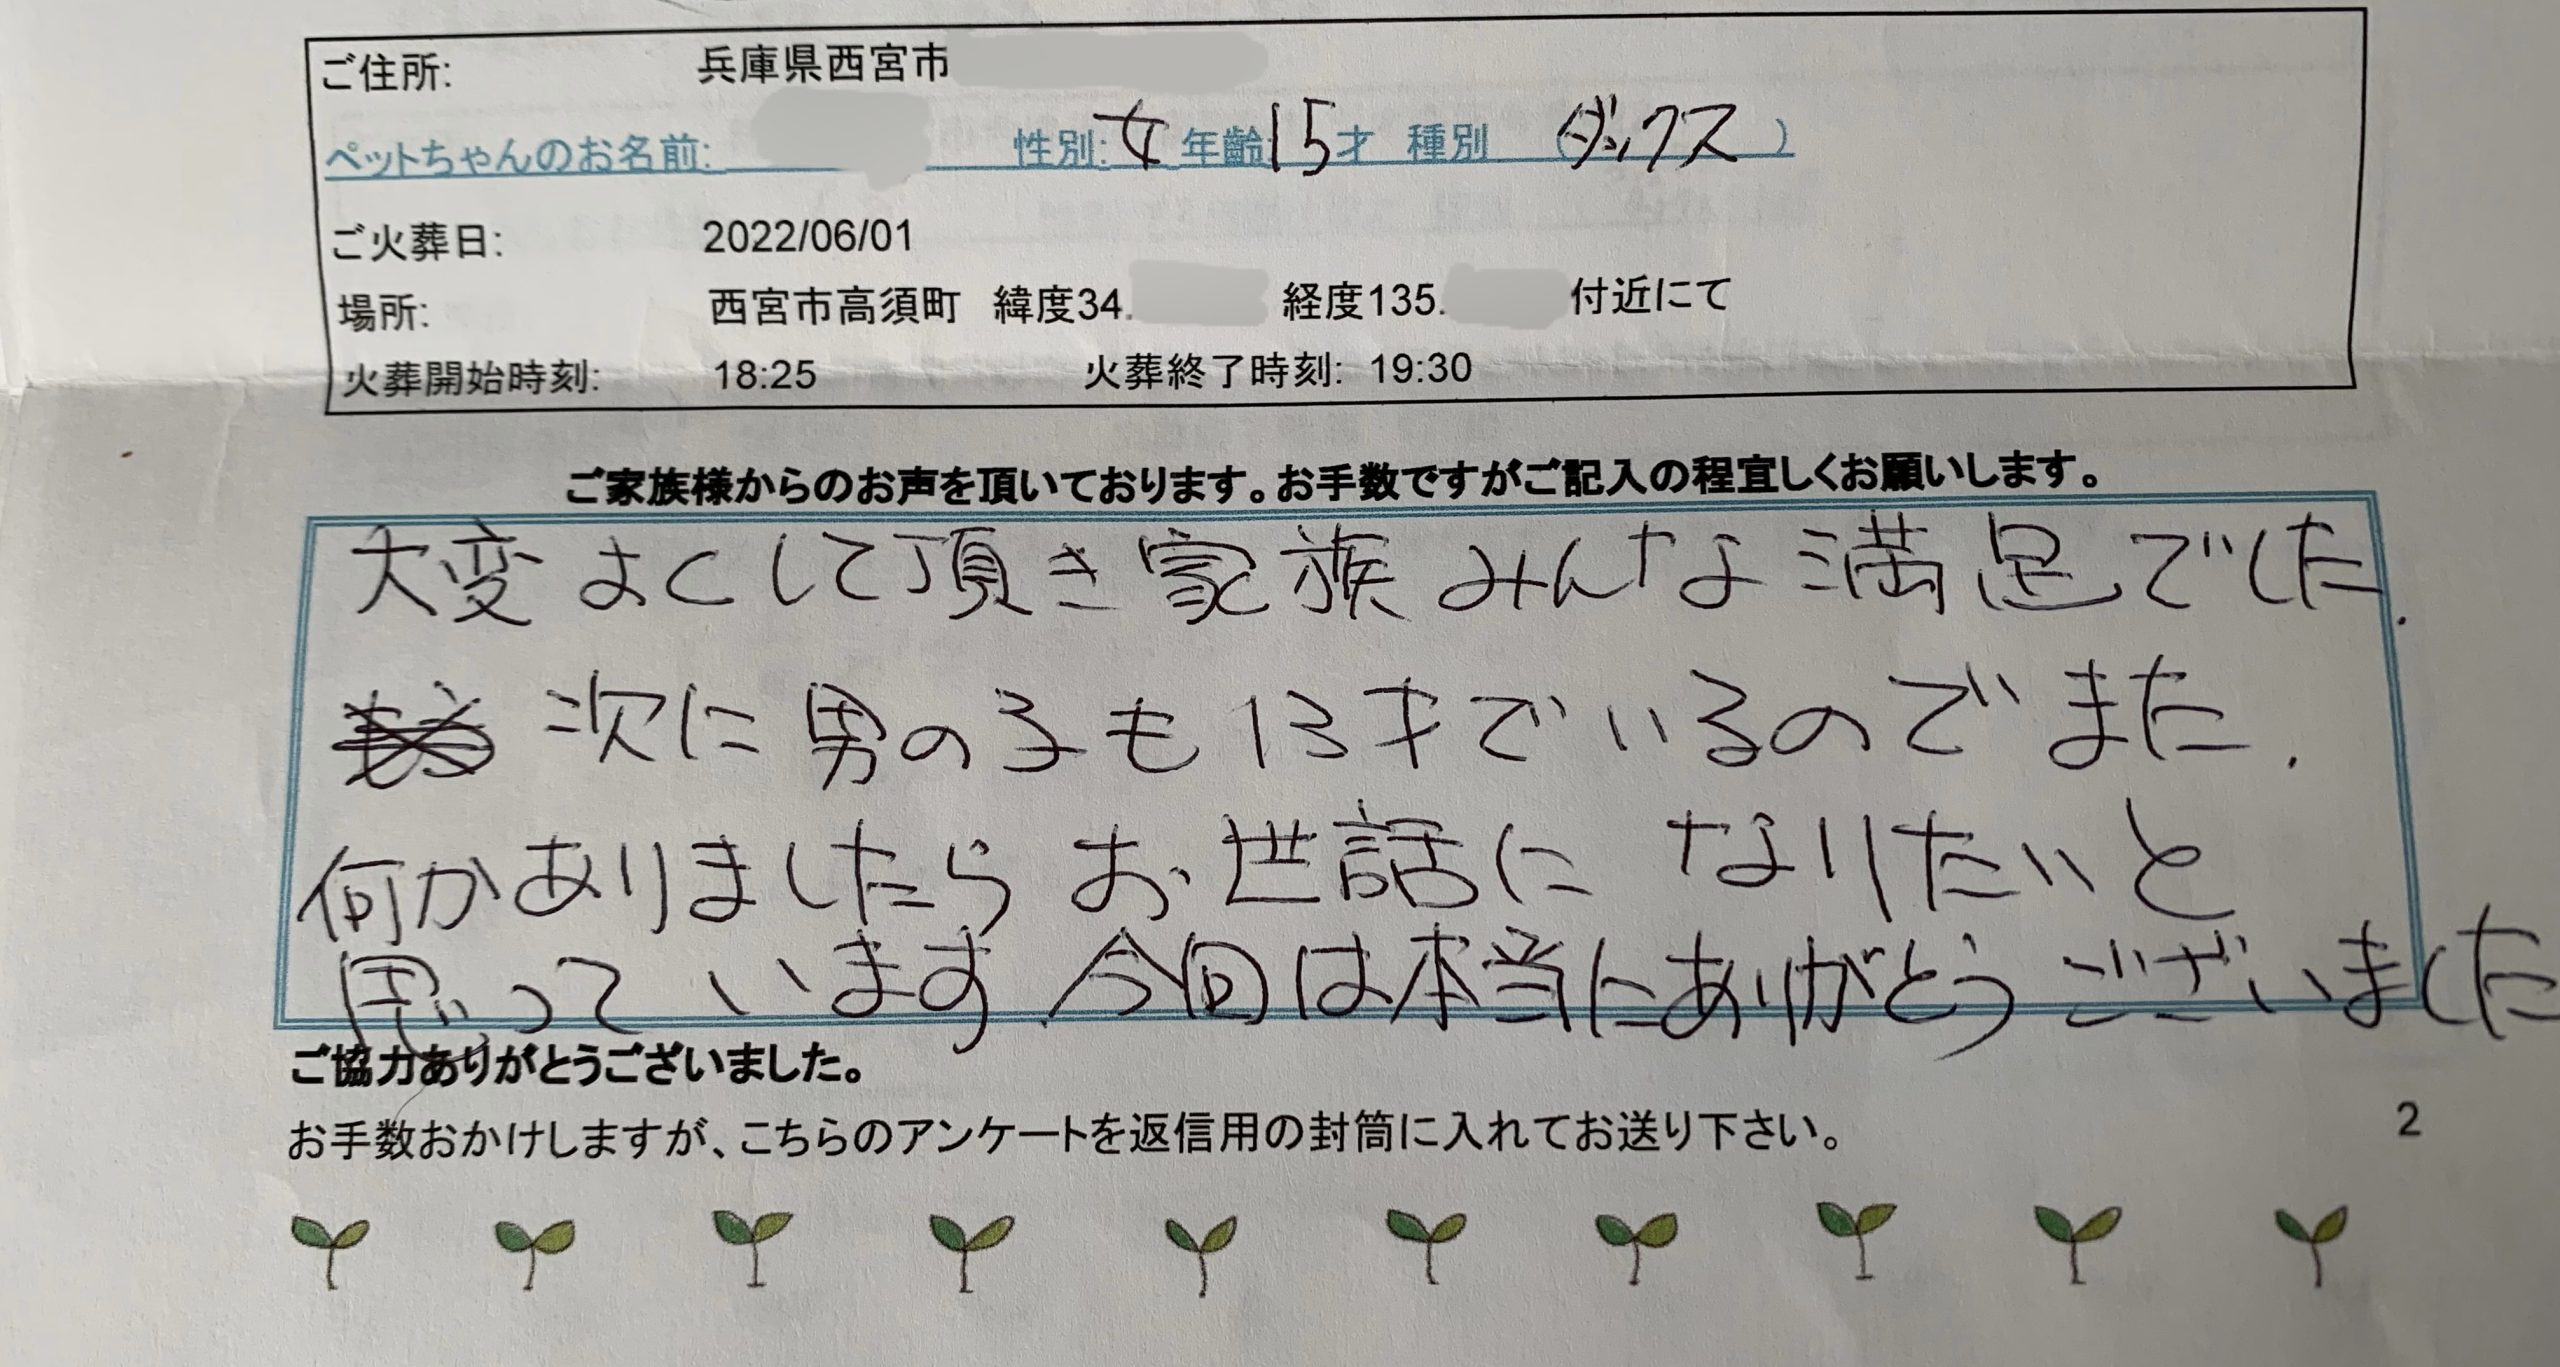 ご住所: 兵庫県西宮市
ペットちゃんのお名前: 性別:女 年齢15才 種別 (ダックス)
ご火葬日: 2022/06/01
場所: 西宮市高須町 緯度34. 経度135. 付近にて
火葬開始時刻: 18:25 火葬終了時刻: 19:30
ご家族様からのお声を頂いております。お手数ですがご記入の程宜しくお願いします。
大変よくして頂き家族みんな満足でした.
次に男の子も13才でいるのでまた.
何かありましたらお世話になりたいと
思っています.今回は本当にありがとうございました
ご協力ありがとうございました。
お手数おかけしますが、こちらのアンケートを返信用の封筒に入れてお送り下さい。
2